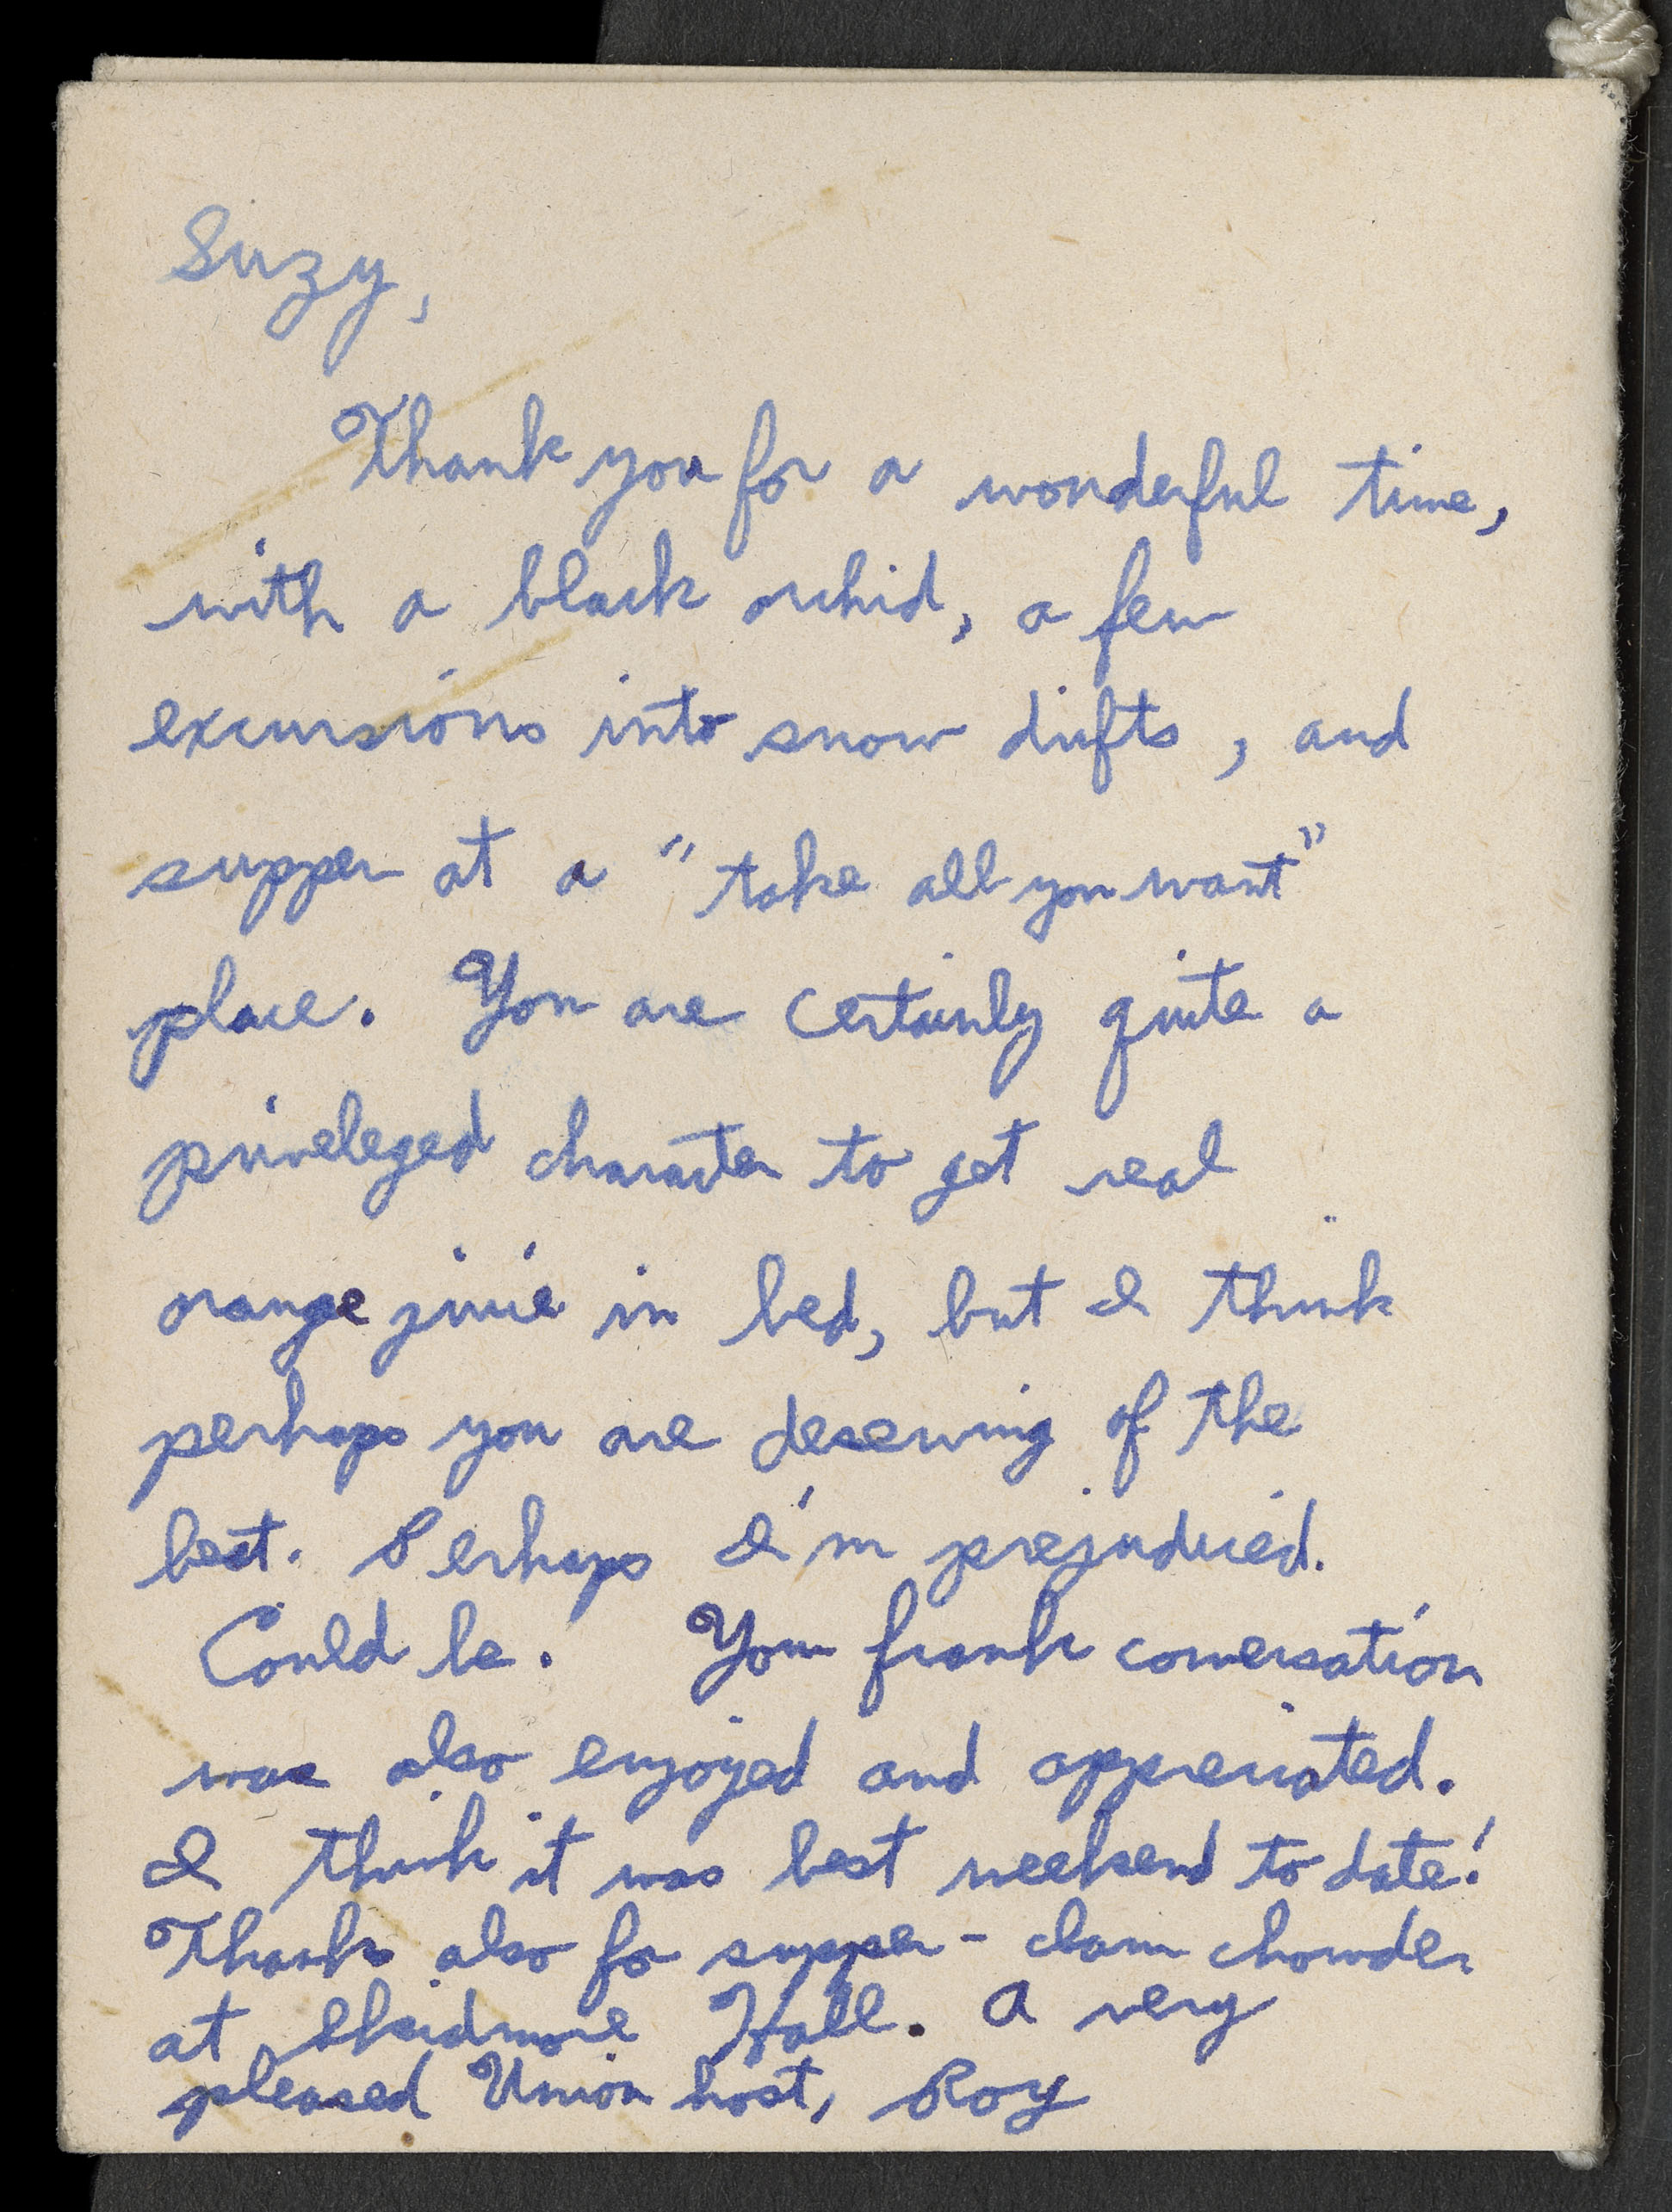 Suzy,
Thank you for a wonderful time,
with a black orchid, a few
excursions into snow drifts, and
supper at a "take all you want"
place. You are certainly quite a
priveleged character to get real
orange juice in bed, but I think
perhaps you are deserving of the
best. Perhaps I'm prejudiced.
Could be. Your frank conversation
was also enjoyed and appreciated.
I think it was best weekend to date!
Thanks also for supper - clam chowder
at Skidmore Hall. A very
pleased Union host, Roy